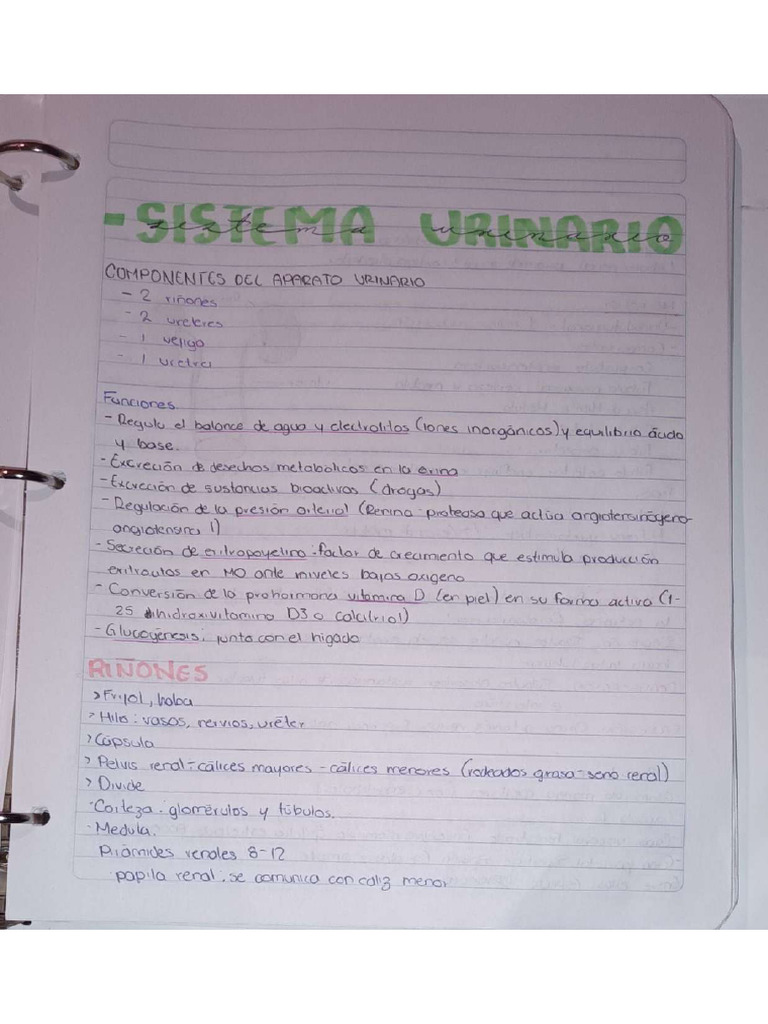 - SISTEMA URINARIO
sistema urinario
COMPONENTES DEL APARATO URINARIO
- 2 riñones
- 2 ureteres
- 1 vejiga
- 1 uretra
Funciones
- Regula el balance de agua y electrolitos (iones inorgánicos) y equilibrio ácido
y base.
- Excreción de desechos metabolicos en la orina
- Excreción de sustancias bioactivas (drogas)
- Regulación de la presión arterial (Renina: proteasa que actúa angiotensinógeno-
angiotensina 1)
- Secreción de eritropoyetina: factor de crecimiento que estimula producción
eritrocitos en MO ante niveles bajos oxigeno
- Conversión de la prohormona vitamina D (en piel) en su forma activa (1-
25 dihidroxivitamina D3 o calcitriol)
- Glucogénesis; junta con el higado
RIÑONES
> Frijol, haba
> Hilio: vasos, nervios, uréter
> Cápsula
> Pelvis renal - cálices mayores - cálices menores (rodeados grasa - seno renal)
> Divide
- Corteza: glomérulos y túbulos.
- Medula.
Pirámides renales 8-12
papila renal: se comunica con caliz menor